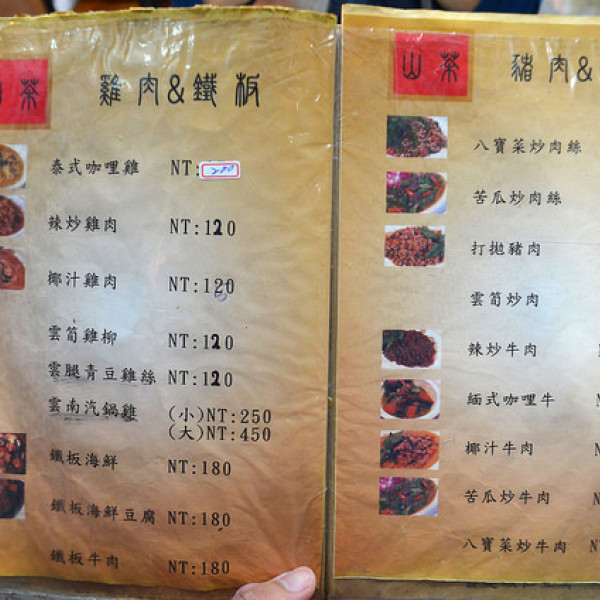 山茶
雞肉&鐵板
泰式咖哩雞 NT:200
辣炒雞肉 NT:120
椰汁雞肉 NT:120
雲筍雞柳 NT:120
雲腿青豆雞絲 NT:120
雲南汽鍋雞 (小)NT:250
(大)NT:450
鐵板海鮮 NT:180
鐵板海鮮豆腐 NT:180
鐵板牛肉 NT:180
山茶
豬肉&
八寶菜炒肉絲
苦瓜炒肉絲
打拋豬肉
雲筍炒肉
辣炒牛肉
緬式咖哩牛
椰汁牛肉
苦瓜炒牛肉
八寶菜炒牛肉